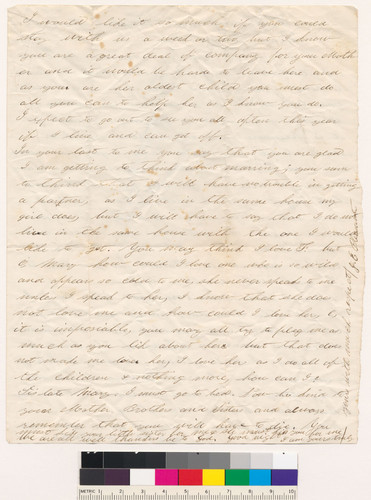 I would like it so much, if you could
stay with us a week or two, but I know
you are a great deal of company for your Moth
er and it would be hard to leave here and
as you are her oldest child you must do
all you can to help her as I know you do.
I expect to go out to see you all, often this year
if I live and can get off.
In your last to me you say that you are glad
I am getting to think about marrying; you seem
to think that I will have no trouble in getting
a partner, as I live in the same house my
girl does, but I will have to say that I do not
live in the same house with the one I would
like to get. You may think I love it but
O Mary how could I love one who is so wild
and appears so cold to me, she never speaks to me
unless I speak to her, I know that she does
not love me and how could I love her O
it is impossible, you may all try to plague me as
much as you like about her but that does
not make me love her, I love her as I do all of
the children & nothing more, how can I?
Tis late Mary I must go to bed. You be kind to
your Mother Brother and Sisters and always
remember that you will have to die. You
must kiss your little sister for me
We are all well thanks be to God. Good night I am yours truly
yours with much respect
METRIC 1 2 3 4 5 6 7 8 9 10